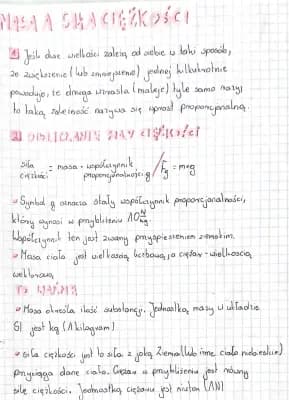 MASA A SIŁA CIĘŻKOŚCI
1 Jeśli dwie wielkości zależą od siebie w taki sposób,
że zwiększenie (lub zmniejszenie) jednej kilkukrotnie
powoduje, że druga wzrasta (maleje) tyle samo razy
to taką zależność nazywa się wprost proporcjonalną.
2 OBLICZANIE SIŁY CIĘŻKOŚCI
siła ciężkości = masa · współczynnik proporcjonalności g / Fg = m·g
Symbol g oznacza stały współczynnik proporcjonalności,
który wynosi w przybliżeniu 10 N/kg.
Współczynnik ten jest zwany przyspieszeniem ziemskim.
Masa ciała jest wielkością liczbową, a ciężar - wielkością
wektorową.
TO WAŻNE
Masa określa ilość substancji. Jednostką masy w układzie
SI jest kg (1 kilogram)
Siła ciężkości jest to siła z jaką Ziemia (lub inne ciało niebieskie)
przyciąga dane ciało. Ciężar w przybliżeniu jest równy
sile ciężkości. Jednostką ciężaru jest niuton (1N)